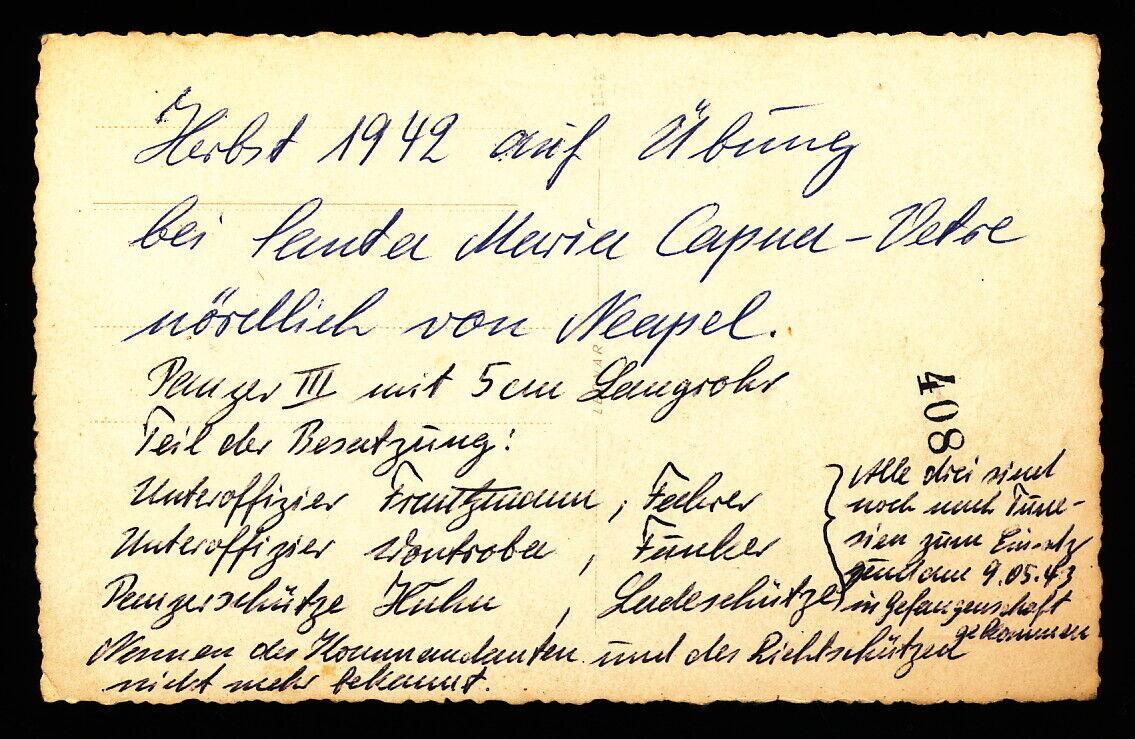 Herbst 1942 auf Übung
bei Santa Maria Capua-Vetre
nördlich von Neapel.
Panzer III mit 5cm Langrohr
408
Teil der Besatzung:
Unteroffizier Frautzmann, Fahrer
Unteroffizier Wontroba, Funker
Panzerschütze Huhn, Ladeschütze
Alle drei sind
noch nach Tune-
sien zum Einsatz
und am 9.05.43
in Gefangenschaft
gekommen
Namen des Kommandanten und des Richtschützen
nicht mehr bekannt.